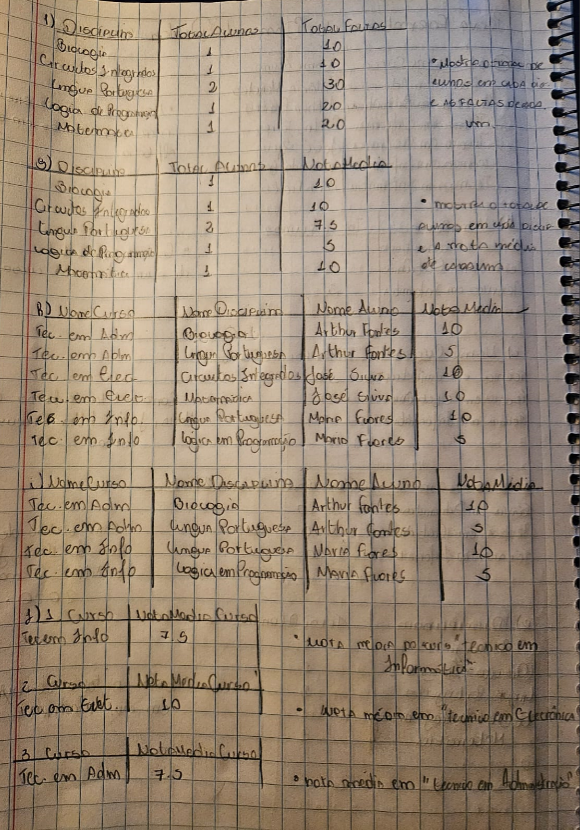 1) Disciplina | Total Alunos | Total Faltas
Biologia | 1 | 10
Circuitos Integrados | 1 | 10
Lingua Portuguesa | 2 | 30
Logica de Programação | 1 | 20
Matematica | 1 | 20
• Mostra o total de
alunos em cada
e as faltas de cada
um.
g) Disciplina | Total Alunos | Nota Media
Biologia | 1 | 10
Circuitos Integrados | 1 | 10
Lingua Portuguesa | 2 | 7.5
Logica de Programação | 1 | 5
Matematica | 1 | 10
• mostra o total de
alunos em cada
e a nota média
de cada um
h) Nome Curso | Nome Disciplina | Nome Aluno | Nota Media
Tec. em Adm | Biologia | Arthur Fontes | 10
Tec. em Adm | Lingua Portuguesa | Arthur Fontes | 5
Tec em Elet | Circuitos Integrados | José Silva | 10
Tec em Elet | Matematica | José Silva | 10
Tec em Info | Lingua Portuguesa | Maria Flores | 10
Tec. em Info | Lógica em Programação | Maria Flores | 5
i) Nome Curso | Nome Disciplina | Nome Aluno | Nota Media
Tec. em Adm | Biologia | Arthur Fontes | 10
Tec. em Adm | Lingua Portuguesa | Arthur Fontes | 5
Tec. em Info | Lingua Portuguesa | Maria Flores | 10
Tec. em Info | Logica em Programação | Maria Flores | 5
j) 1 Curso | Nota Media Curso
Tec em Info | 7.5
• nota media "tecnico em
Informática"
2 Curso | Nota Media Curso
Tec em Elet. | 10
• nota média em "tecnico em Eletrônica
3 Curso | Nota Media Curso
Tec. em Adm | 7.5
• nota média em "tecnico em Administração"